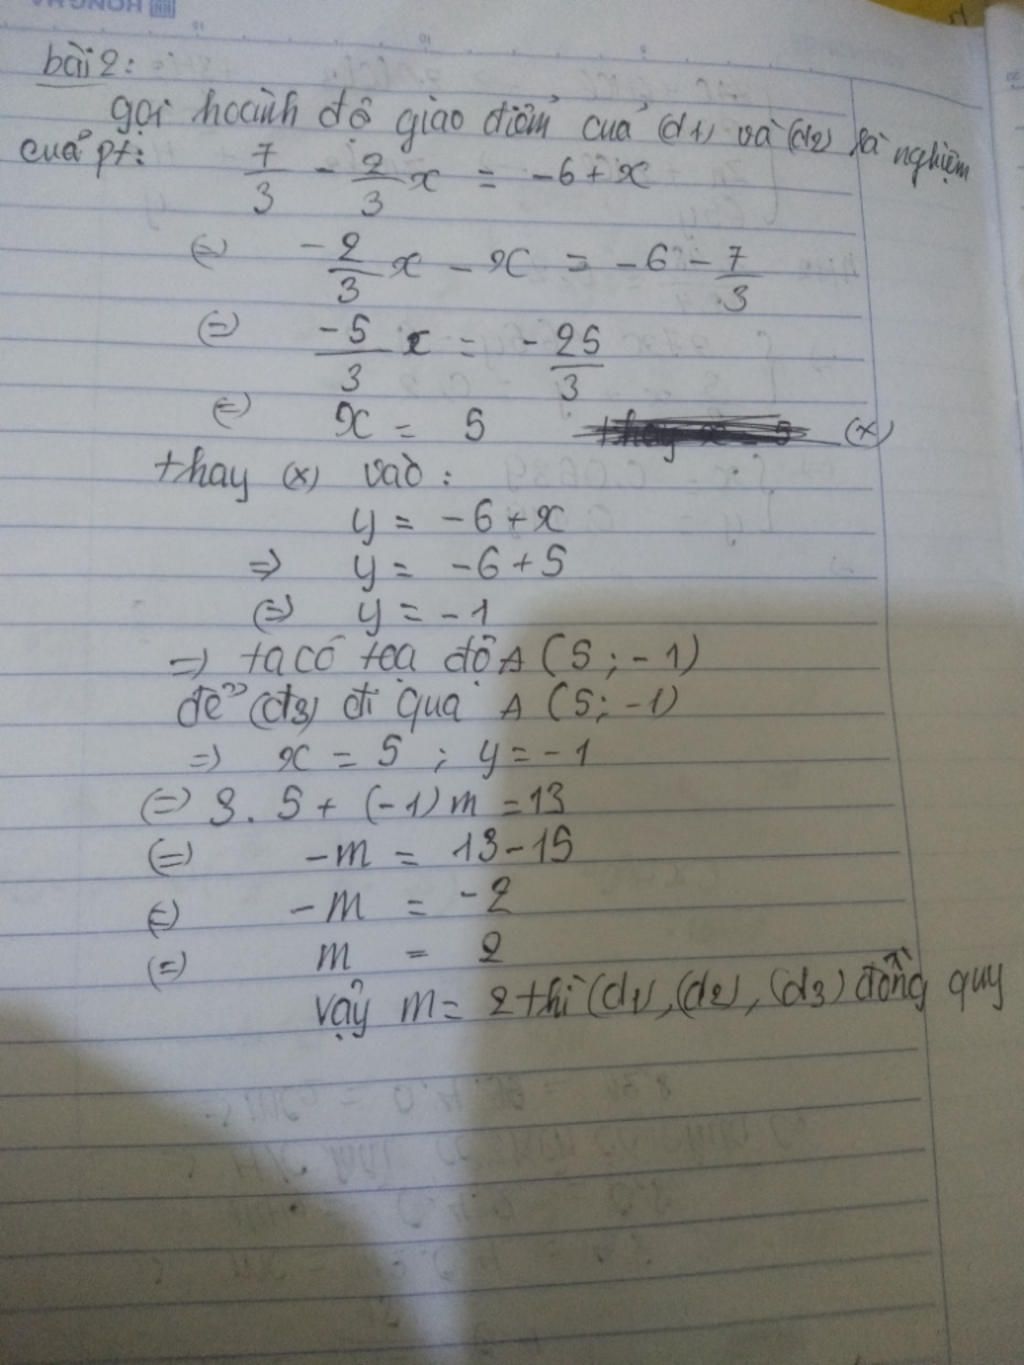 HONG HA
bài 2:
gọi hoành độ giao điểm của (d1) và (d2) là nghiệm
của pt: 7/3 - 2/3 x = -6+x
(=) -2/3 x - x = -6 - 7/3
(=) -5/3 x = -25/3
(=) x = 5 (x)
thay (x) vào :
y = -6+x
=> y = -6+5
(=) y = -1
=> ta có tọa độ A (5 ; -1)
để (d3) đi qua A (5; -1)
=> x = 5 ; y = -1
(=) 3. 5 + (-1) m = 13
(=) -m = 13-15
(=) -m = -2
(=) m = 2
vậy m = 2 thì (d1), (d2), (d3) đồng quy